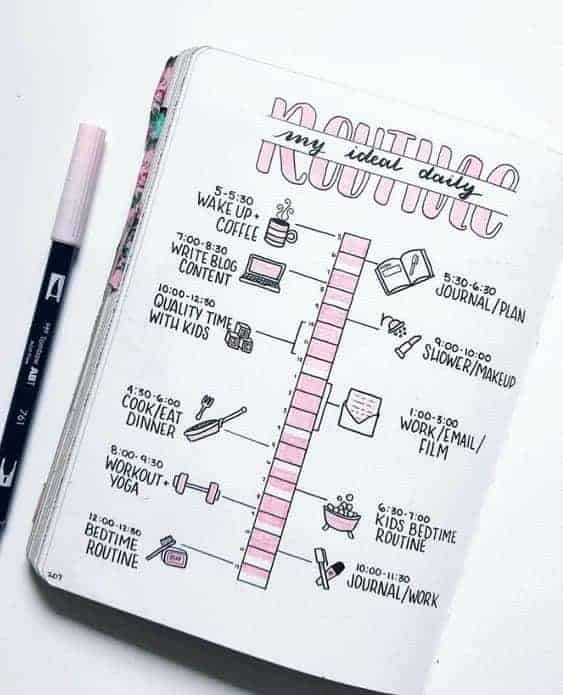 ROUTINE
my ideal daily
5-5:30
WAKE UP +
COFFEE
5:30-6:30
JOURNAL/PLAN
7:00-8:30
WRITE BLOG
CONTENT
9:00-10:00
SHOWER/MAKEUP
10:00-12:30
QUALITY TIME
WITH KIDS
1:00-3:00
WORK/EMAIL/
FILM
4:30-6:00
COOK/EAT
DINNER
6:30-7:00
KIDS BEDTIME
ROUTINE
8:00-9:30
WORKOUT+
YOGA
10:00-11:30
JOURNAL/WORK
12:00-12:30
BEDTIME
ROUTINE
207
Tombow
ABT
761